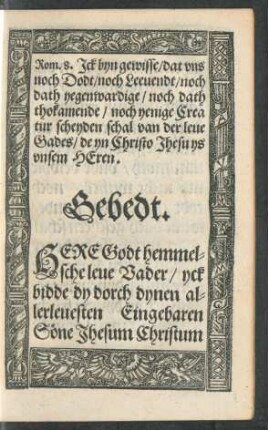 Rom. 8. Jck byn gewisse/dat vns
noch Dodt/noch Leeuendt/noch
dath yegenwardige/noch dath
thokamende/noch yenige Crea
tur scheyden schal van der leue
Gades/de yn Christo Jhesu ys
vnsem HEren.
Gebedt.
HERE Godt hemmel-
sche leue Vader/yck
bidde dy dorch dynen al-
lerleuesten Eingebaren
Söne Jhesum Christum